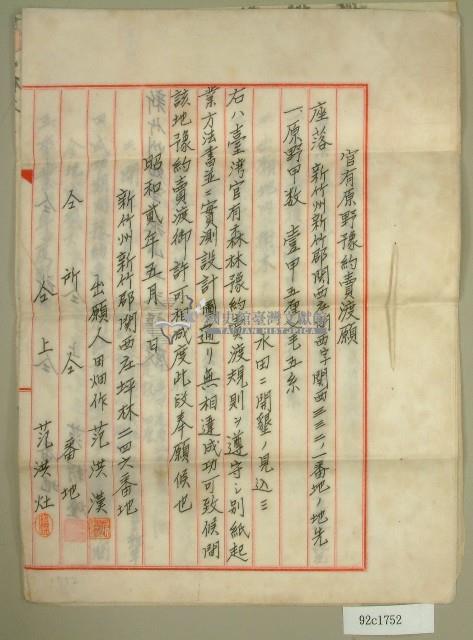 官有原野豫約賣渡願
座落 新竹州新竹郡關西庄關西字關西三三二ノ一番地ノ地先
一、原野甲数 壹甲五厘毛五糸
水田ニ開墾ノ見込ミ
右ハ臺湾官有森林豫約賣渡規則ヲ遵守シ別紙起
業方法書並ニ実測設計圖通リ無相違成功可致候間
該地豫約賣渡御許可相成度此段奉願候也
昭和貳年五月 日
新竹州新竹郡關西庄坪林二四六番地
出願人田畑作 范洪漢
仝 所 仝 番地
仝 上 范洪灶
國史館臺灣文獻館
TAIWAN HISTORICA
92c1752